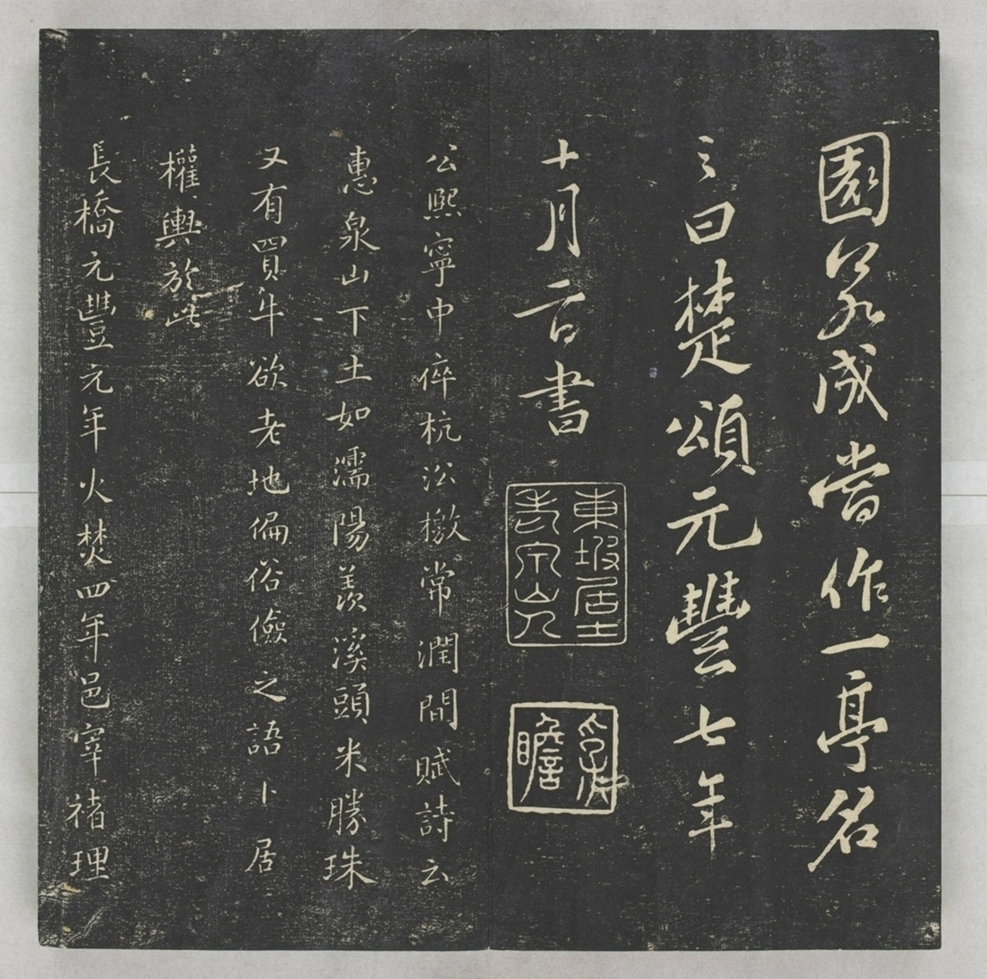 園若成當作一亭名
之曰楚頌元豐七年
十月二日書
東坡居士
老泉山人
瞻
公熙寧中倅杭沿檄常潤間賦詩云
惠泉山下土如濡陽羨溪頭米勝珠
又有買牛欲老地偏俗儉之語卜居
權輿於此
長橋元豐元年火焚四年邑宰褚理